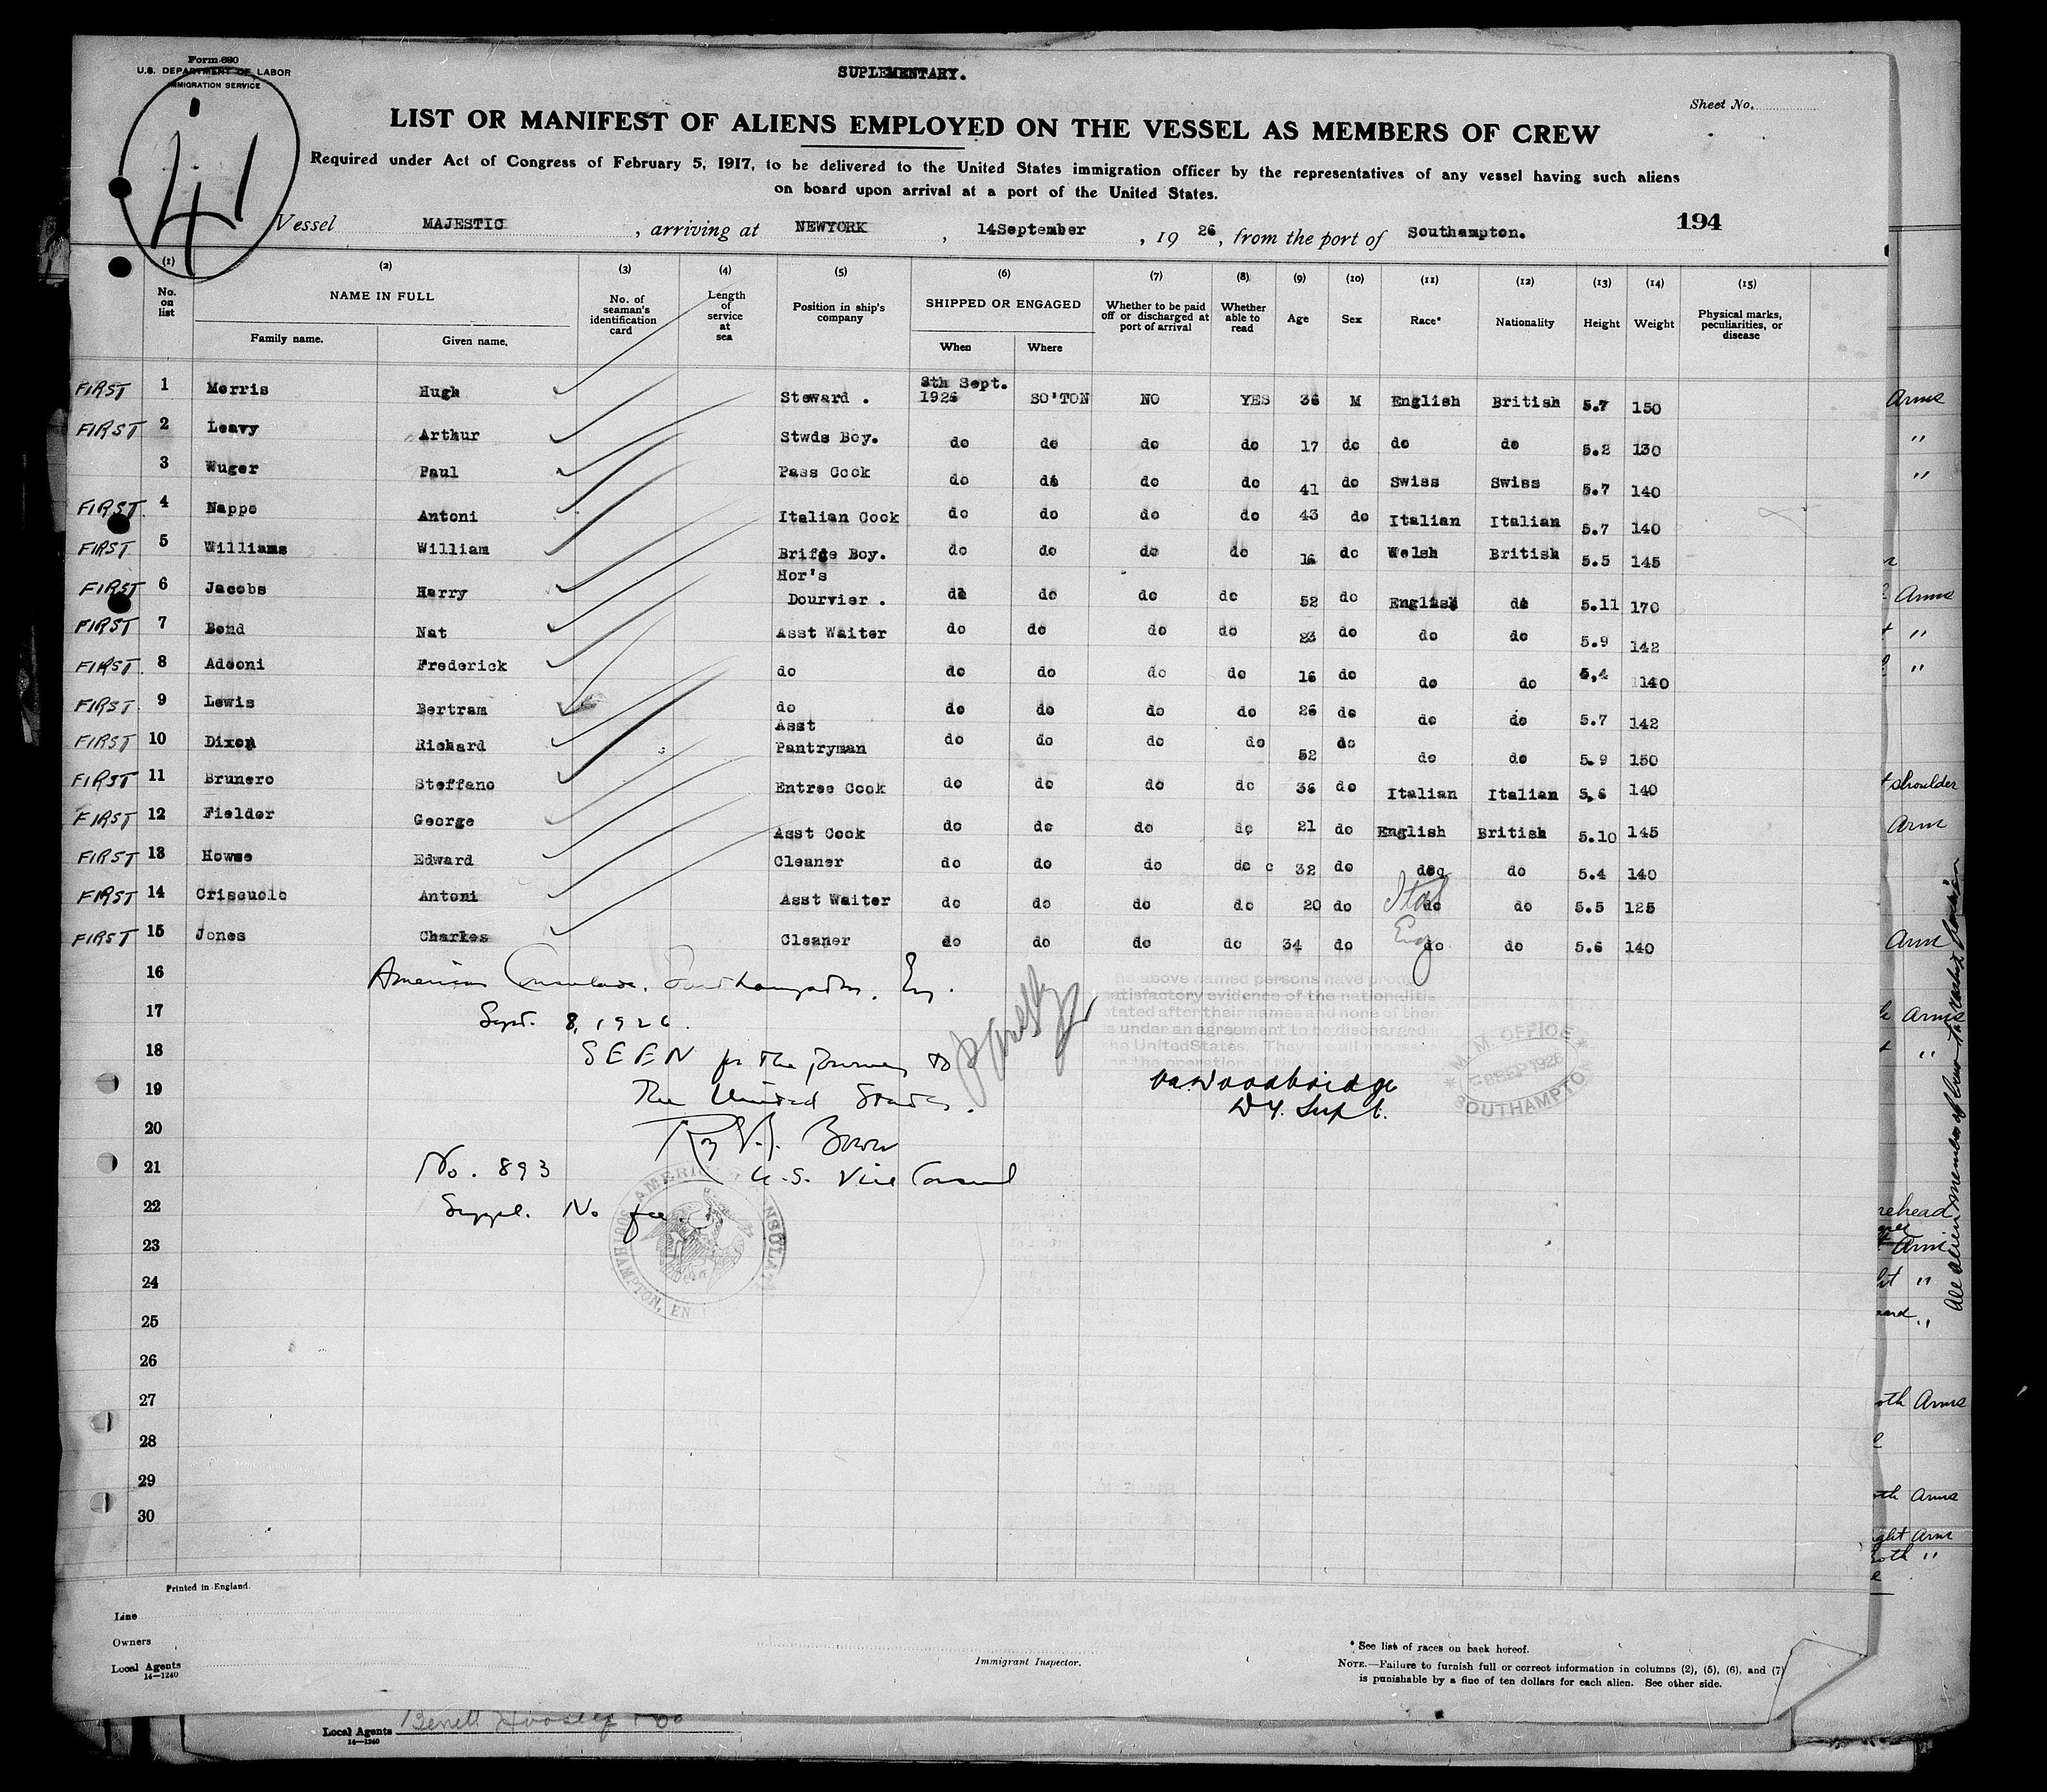 Form 680
U.S. DEPARTMENT OF LABOR
IMMIGRATION SERVICE
41
SUPLEMENTARY.
Sheet No.
LIST OR MANIFEST OF ALIENS EMPLOYED ON THE VESSEL AS MEMBERS OF CREW
Required under Act of Congress of February 5, 1917, to be delivered to the United States immigration officer by the representatives of any vessel having such aliens
on board upon arrival at a port of the United States.
194
Vessel MAJESTIC, arriving at NEWYORK, 14September, 1926, from the port of Southampton.
(1) (2) (3) (4) (5) (6) (7) (8) (9) (10) (11) (12) (13) (14) (15)
No. on list NAME IN FULL Family name. Given name. No. of seaman's identification card Length of service at sea Position in ship's company SHIPPED OR ENGAGED When Where Whether to be paid off or discharged at port of arrival Whether able to read Age Sex Race* Nationality Height Weight Physical marks, peculiarities, or disease
FIRST 1 Morris Hugh Steward . 8th Sept. 1926 SO'TON NO YES 36 M English British 5.7 150 Arms
FIRST 2 Leavy Arthur Stwds Boy. do do do do 17 do do do 5.2 130 "
3 Wuger Paul Pass Cook do do do do 41 do Swiss Swiss 5.7 140 "
FIRST 4 Nappo Antoni Italian Cook do do do do 43 do Italian Italian 5.7 140
FIRST 5 Williams William Brifge Boy. do do do do 16 do Welsh British 5.5 145
FIRST 6 Jacobs Harry Hor's Dourvier . do do do do 52 do English do 5.11 170 Arms
FIRST 7 Bond Nat Asst Waiter do do do do 23 do do do 5.9 142 "
FIRST 8 Adooni Frederick do do do do do 16 do do do 5,4 140 "
FIRST 9 Lewis Bertram do do do do do 26 do do do 5.7 142
FIRST 10 Dixon Richard Asst Pantryman do do do do 52 do do do 5.9 150
FIRST 11 Brunero Steffano Entree Cook do do do do 36 do Italian Italian 5.6 140 shoulder
FIRST 12 Fielder George Asst Cook do do do do 21 do English British 5.10 145 Arm
FIRST 13 Howse Edward Cleaner do do do do 32 do do do 5.4 140
FIRST 14 Criscuolo Antoni Asst Waiter do do do do 20 do Ital do do 5.5 125
FIRST 15 Jones Charkes Cleaner do do do do 34 do Eng do do 5.6 140 Arm
16
17
18
19
20
21
22
23
24
25
26
27
28
29
30
American Consulate, Southampton, Eng.
Sept. 8, 1926.
SEEN for the journey to
The United States.
U.S. Vice Consul
No. 893
Suppl. No fee.
AMERICAN CONSULATE SOUTHAMPTON, ENG
The above named persons have produced
satisfactory evidence of the nationalities
stated after their names and none of them
is under an agreement to be discharged
the UnitedStates. They
for the operation of the
Woodbridge
Dy. Supt.
M.M. OFFICE
SEP 1926
SOUTHAMPTON
All alien members of crew
Arms
"
forehead
Arm
"
both Arms
both Arms
right Arm
both "
Printed in England.
Line
Owners
Local Agents
14—1240
Immigrant Inspector.
* See list of races on back hereof.
NOTE.—Failure to furnish full or correct information in columns (2), (5), (6), and (7)
is punishable by a fine of ten dollars for each alien. See other side.
Local Agents
14—1240